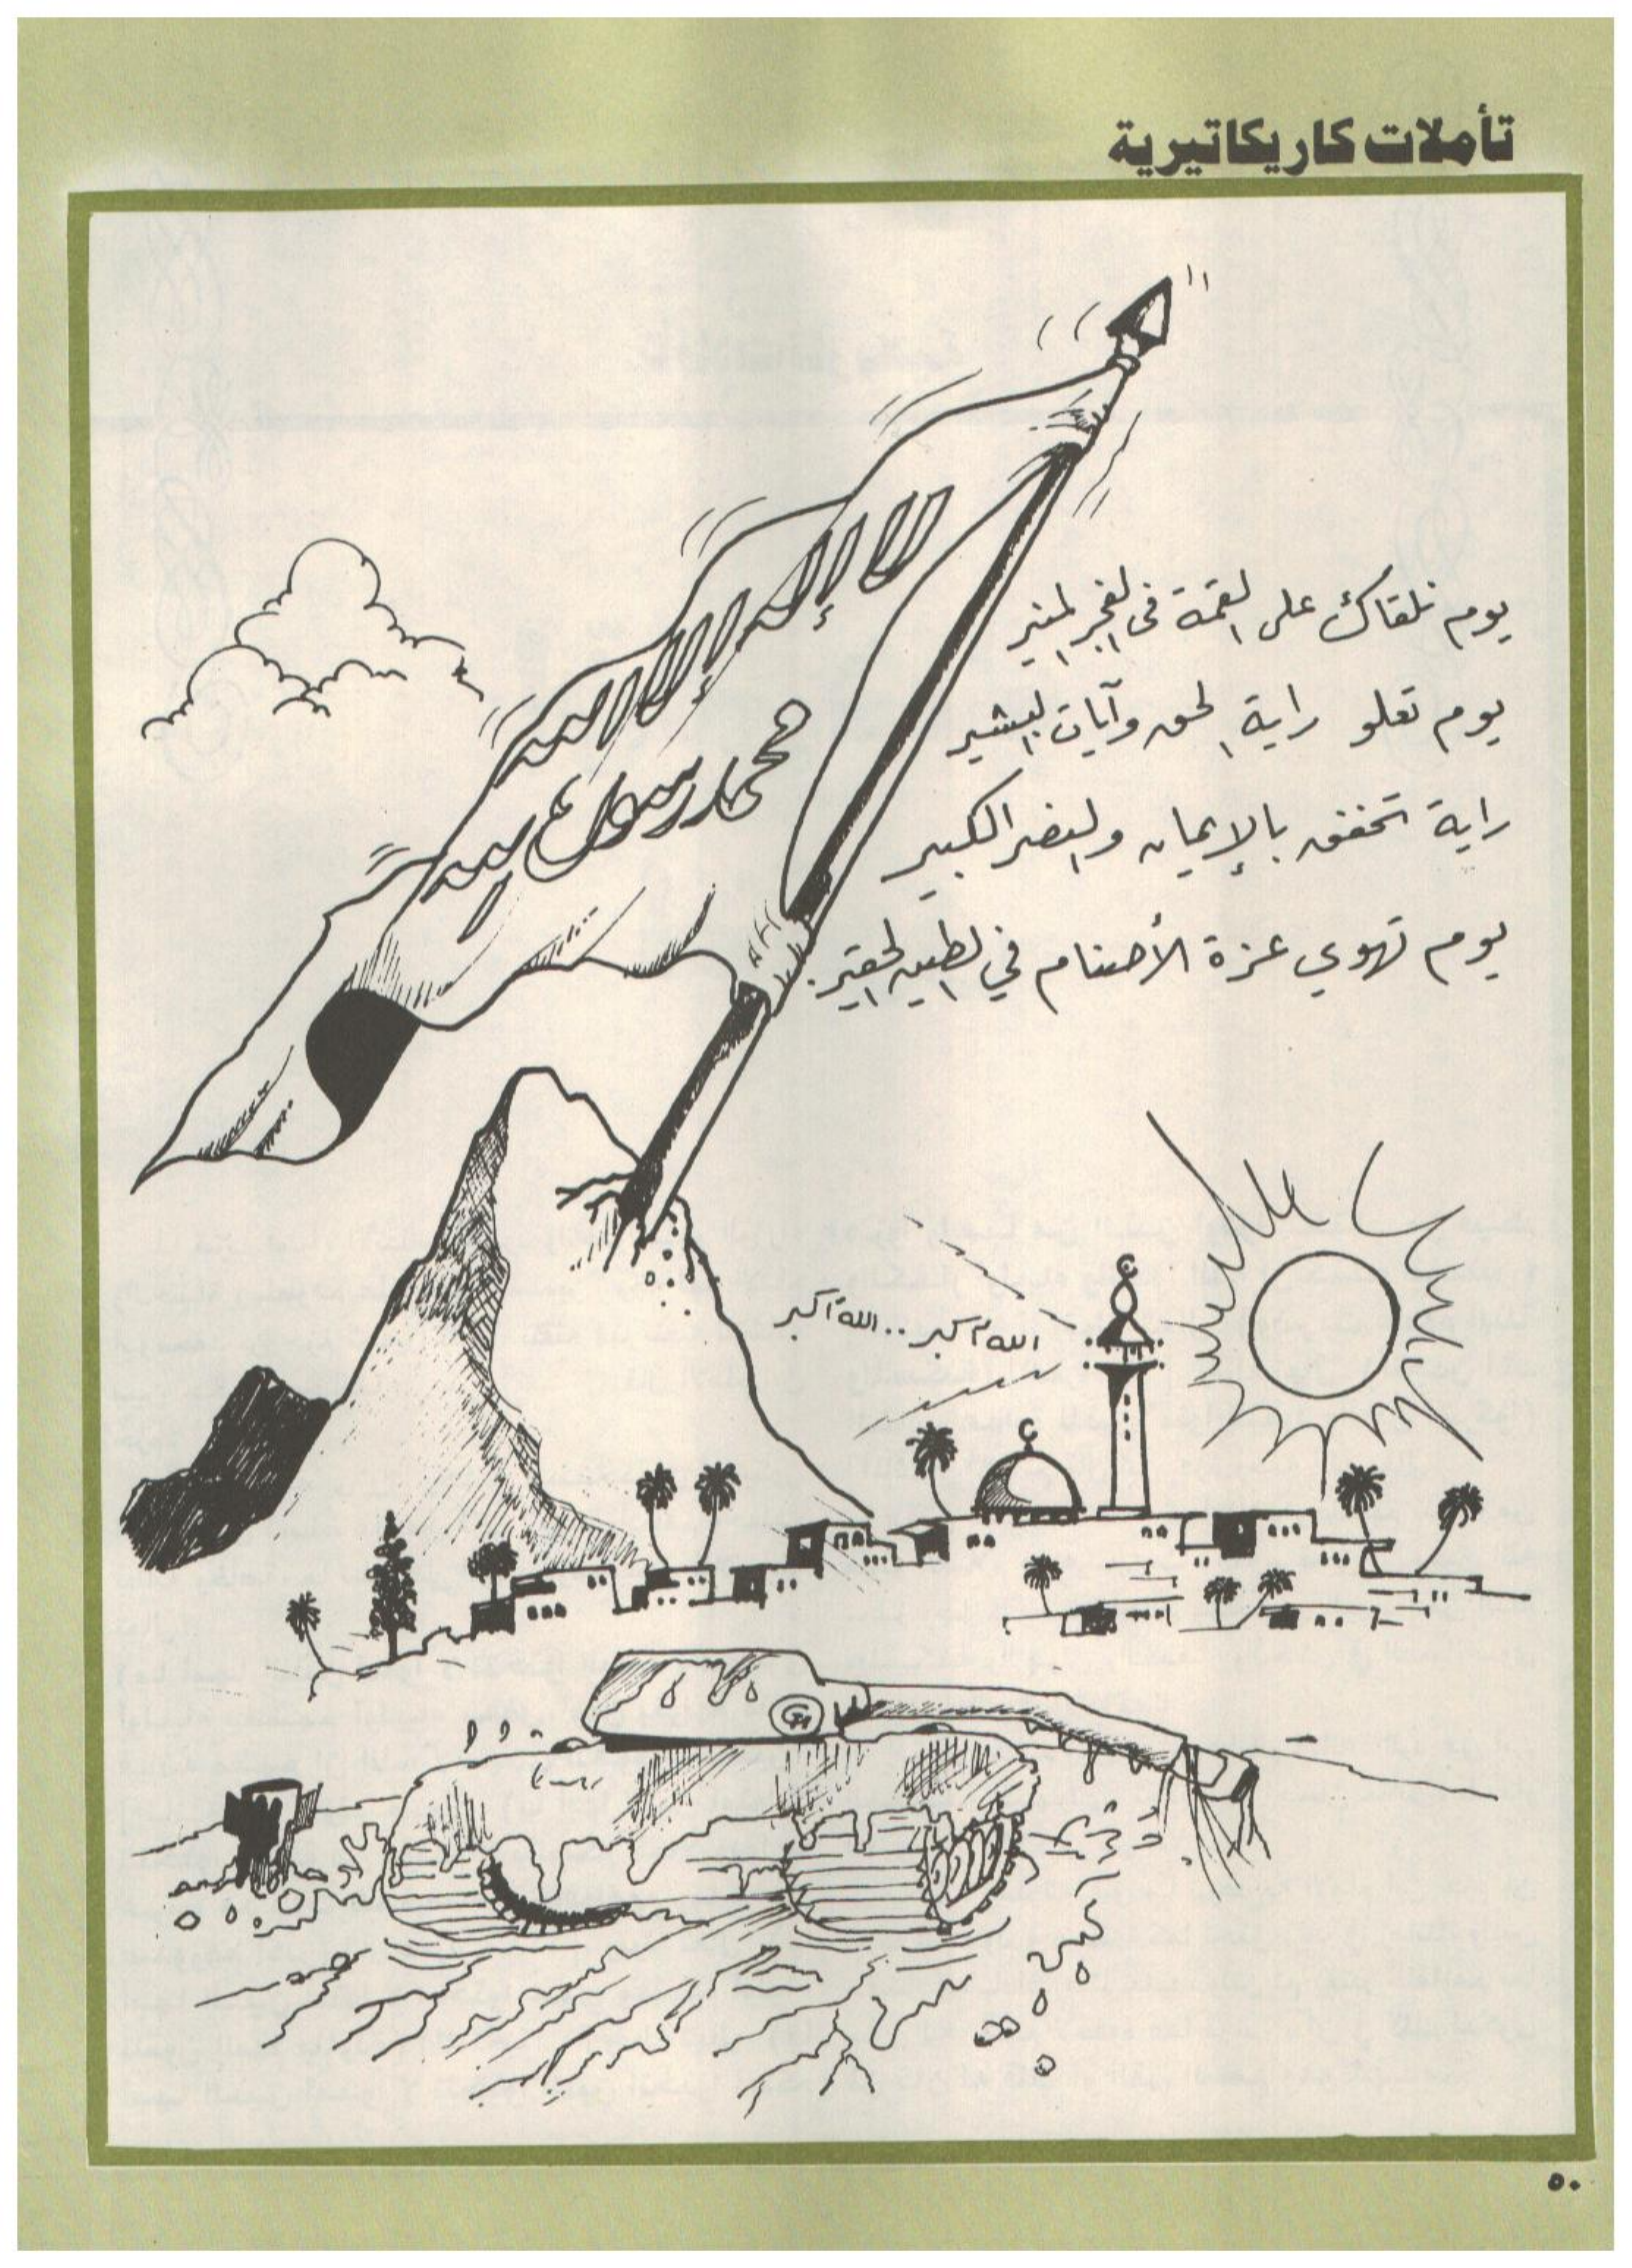 تأملات كاريكاتيرية
لا إله إلا الله
محمد رسول الله
يوم نلقاك على القمة في الفجر المنير
يوم تعلو راية الحق وآيات البشير
راية تخفق بالإيمان والنصر الكبير
يوم تهوي عزة الأصنام في الطين الحقير.
الله أكبر .. الله أكبر
٥٠